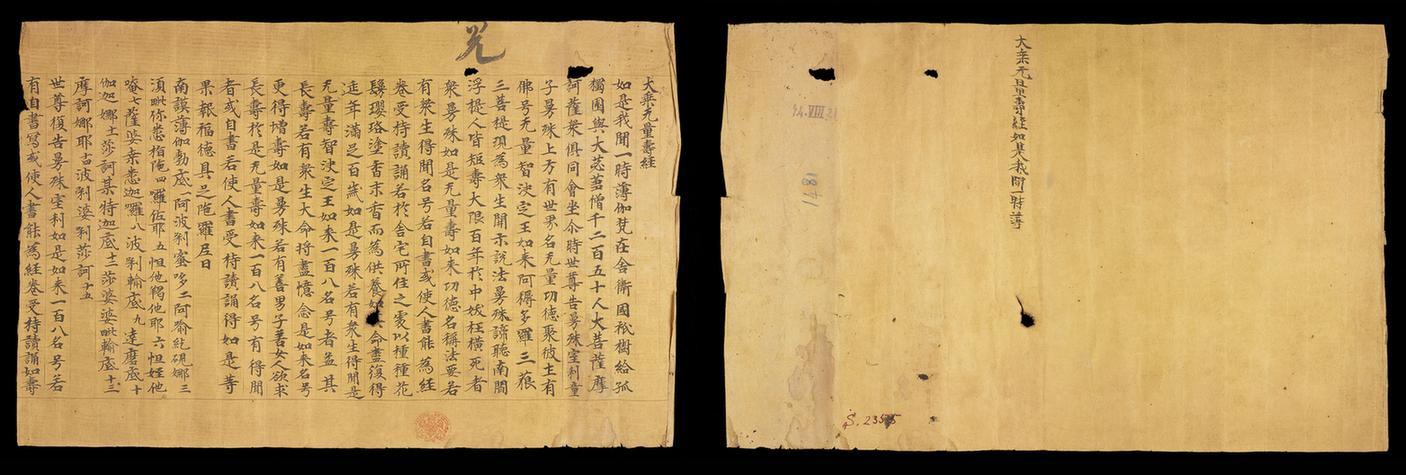 兑
大乘无量壽經
如是我聞一時薄伽梵在舍衛國祇樹給孤
獨園與大苾蒭僧千二百五十人大菩薩摩
訶薩衆俱同會坐尒時世尊告曼殊室利童
子曼殊上方有世界名无量功德聚彼土有
佛号无量智決定王如来阿耨多羅三藐
三菩提現為衆生開示說法曼殊諦聽南閻
浮提人皆短壽大限百年於中夭枉横死者
衆曼殊如是无量壽如来功德名稱法要若
有衆生得聞名号若自書或使人書能為經
卷受持讀誦若於舍宅所住之處以種種花
鬘瓔珞塗香末香而為供養如 命盡復得
延年滿足百歲如是曼殊若有衆生得聞是
无量壽智決定王如来一百八名号者益其
長壽若有衆生大命將盡憶念是如来名号
更得增壽如是曼殊若有善男子善女人欲求
長壽於是无量壽如来一百八名号有得聞
者或自書若使人書受持讀誦得如是等
果報福德具足陁羅尼曰
南謨薄伽勃底一阿波唎蜜哆二阿喻紇硯娜三
湏毗你悉指陁四囉佐耶五怛他羯他耶六怛姪他
唵七薩婆桒悉迦囉八波唎輸底九達磨底十
伽迦娜十一莎訶某特迦底十二莎婆婆毗輸底十三
摩訶娜耶十四波唎婆唎莎訶十五
世尊復告曼殊室利如是如来一百八名号若
有自書寫或使人書能為經卷受持讀誦如壽
大乘无量壽經如是我聞一時薄
1841
S. 2355